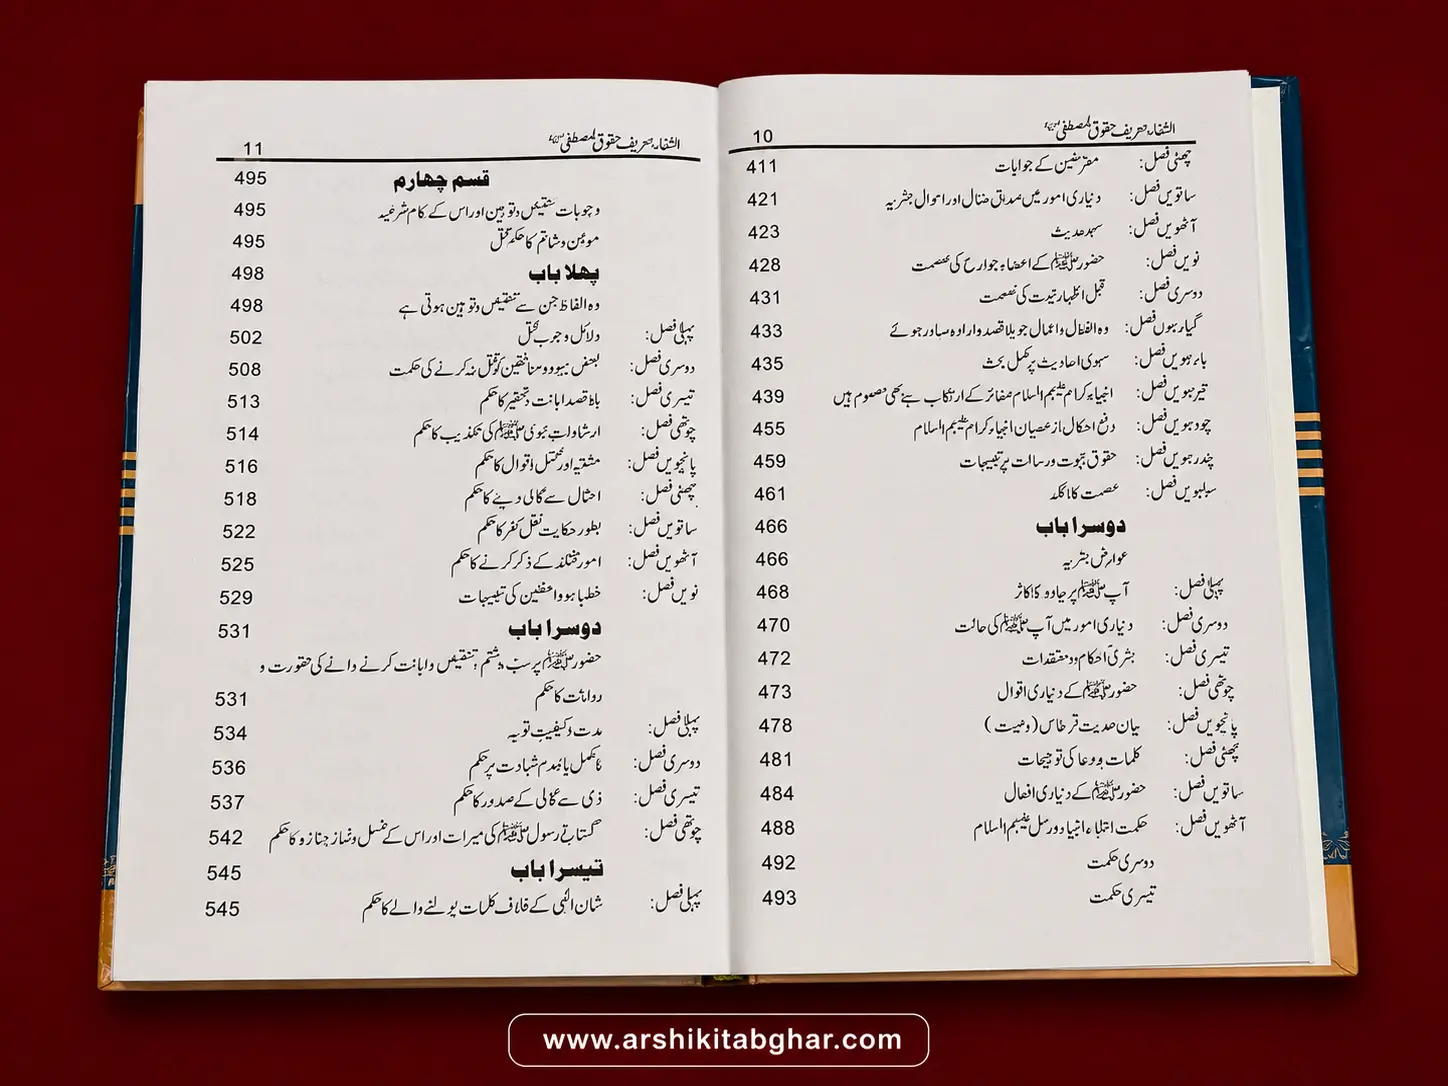 10 الشفاء بتعریف حقوق المصطفیٰ ﷺ
چھٹی فصل: معترضین کے جوابات 411
ساتویں فصل: دنیاوی امور میں صدق مقال اور احوال بشریہ 421
آٹھویں فصل: سہو حدیث 423
نویں فصل: حضور ﷺ کے اعضاء جوارح کی عصمت 428
دوسری فصل: قبل اظہار نبوت کی عصمت 431
گیارہویں فصل: وہ افعال و اعمال جو بلا قصد و ارادہ صادر ہوئے 433
بارہویں فصل: سہوی احادیث پر مکمل بحث 435
تیرہویں فصل: انبیاء کرام علیہم السلام صغائر کے ارتکاب سے بھی معصوم ہیں 439
چودہویں فصل: دفع احکال از عصیان انبیاء کرام علیہم السلام 455
پندرہویں فصل: حقوق نبوت و رسالت پر تنبیہات 459
سولہویں فصل: عصمت کا فائدہ 461
دوسرا باب 466
عوارض بشریہ 466
پہلی فصل: آپ ﷺ پر جادو کا اثر 468
دوسری فصل: دنیاوی امور میں آپ ﷺ کی حالت 470
تیسری فصل: بشری احکام و معتقدات 472
چوتھی فصل: حضور ﷺ کے دنیاوی اقوال 473
پانچویں فصل: بیان حدیث قرطاس (وصیت) 478
چھٹی فصل: کلمات و دعا کی توجیحات 481
ساتویں فصل: حضور ﷺ کے دنیاوی افعال 484
آٹھویں فصل: حکمت ابتلاء انبیاء و رسل علیہم السلام 488
دوسری حکمت 492
تیسری حکمت 493
11 الشفاء بتعریف حقوق المصطفیٰ ﷺ
قسم چہارم 495
وجوبات تنقیص و توہین اور اس کے احکام شرعیہ 495
موہن و شاتم کا حکم قتل 495
پہلا باب 498
وہ الفاظ جن سے تنقیص و توہین ہوتی ہے 498
پہلی فصل: دلائل وجوب قتل 502
دوسری فصل: بعض یہود و منافقین کو قتل نہ کرنے کی حکمت 508
تیسری فصل: بلا قصد اہانت و تحقیر کا حکم 513
چوتھی فصل: ارشادات نبوی ﷺ کی تکذیب کا حکم 514
پانچویں فصل: مشتبہ اور محتمل اقوال کا حکم 516
چھٹی فصل: امثال سے گالی دینے کا حکم 518
ساتویں فصل: بطور حکایت نقل کفر کا حکم 522
آٹھویں فصل: امور مختلفہ کے ذکر کرنے کا حکم 525
نویں فصل: خطباء و واعظین کی تنبیہات 529
دوسرا باب 531
حضور ﷺ پر سب و شتم، تنقیص و اہانت کرنے والے کی عقوبت و
وراثت کا حکم 531
پہلی فصل: مدت و کیفیت توبہ 534
دوسری فصل: نامکمل یا عدم شہادت پر حکم 536
تیسری فصل: ذمی سے گالی کے صدور کا حکم 537
چوتھی فصل: گستاخ رسول ﷺ کی میراث اور اس کے غسل و نماز جنازہ کا حکم 542
تیسرا باب 545
پہلی فصل: شان الٰہی کے خلاف کلمات بولنے والے کا حکم 545
www.arshikitabghar.com